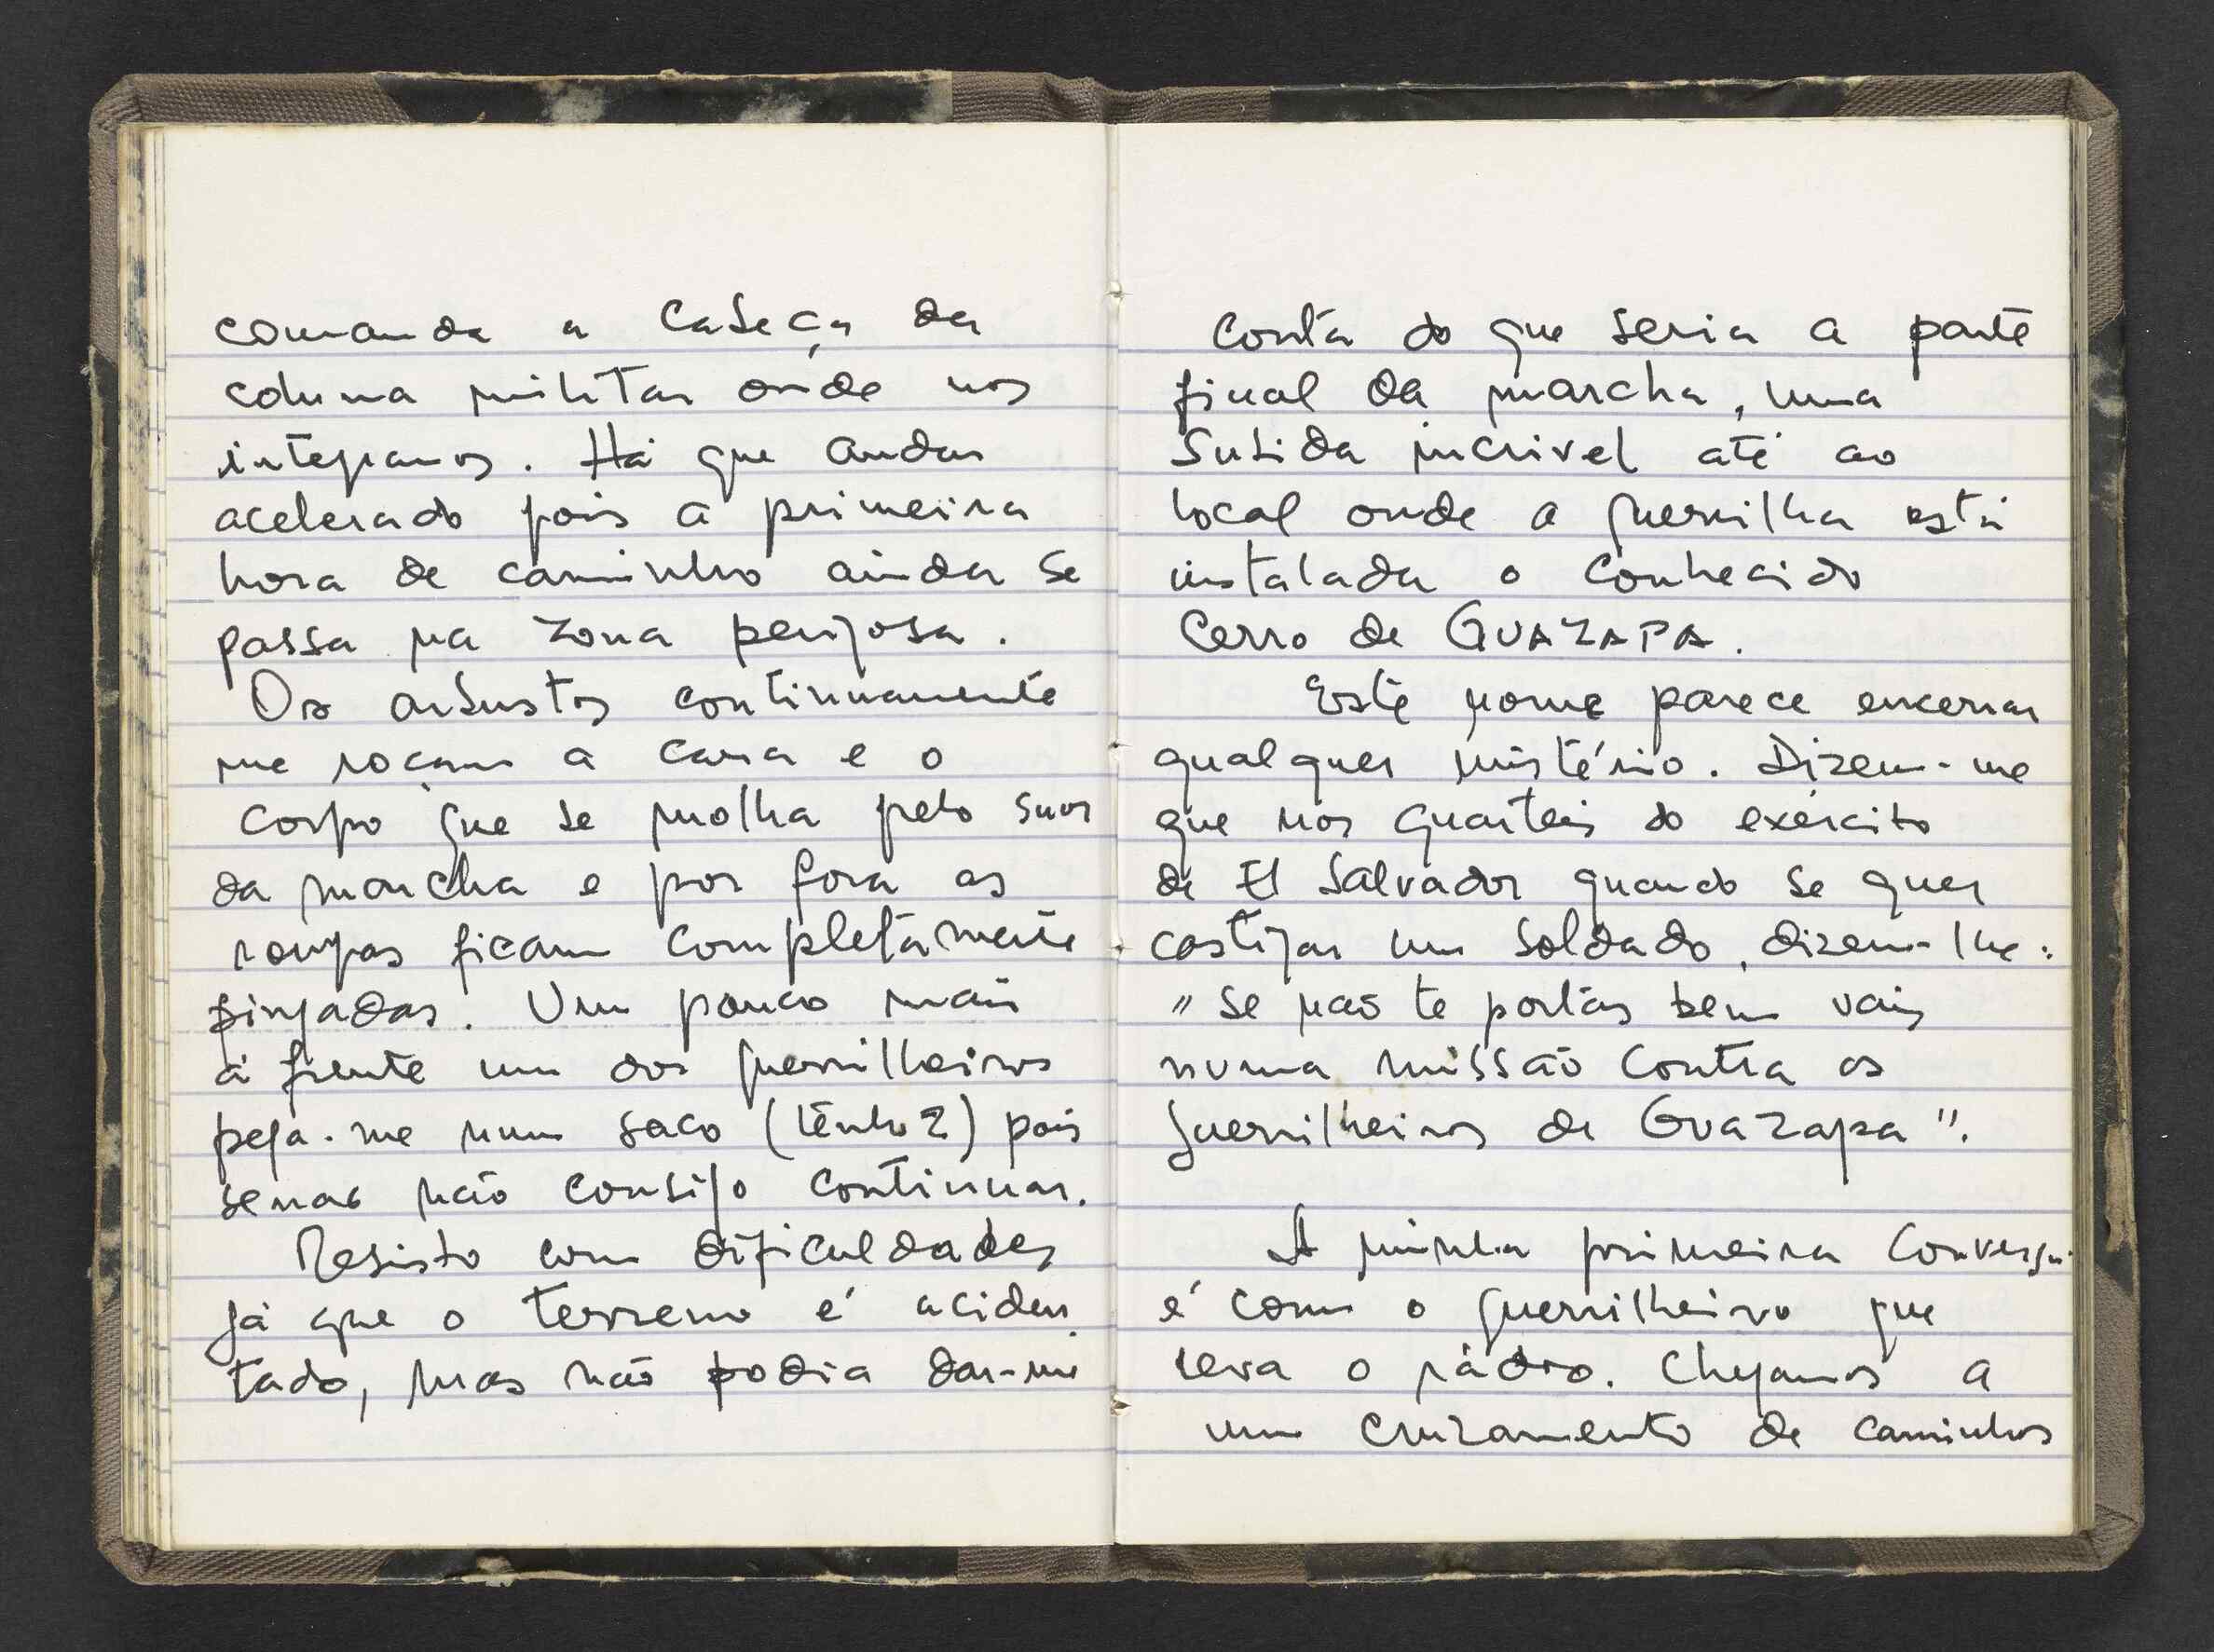 comanda a cabeça da
coluna militar onde nos
integramos. Há que andar
acelerado pois a primeira
hora de caminho ainda se
passa na zona perigosa.
Os arbustos continuamente
me roçam a cara e o
corpo que se molha pelo suor
da marcha e por fora as
roupas ficam completamente
pingadas. Um pouco mais
à frente um dos guerrilheiros
pega-me num saco (tenho 2) pois
senão não consigo continuar.
Resisto com dificuldades
já que o terreno é aciden
tado, mas não podia dar-me
conta do que seria a parte
final da marcha, uma
subida incrivel até ao
local onde a guerrilha está
instalada o conhecido
Cerro de GUAZAPA.
Este nome parece encerrar
qualquer mistério. Dizem-me
que nos quarteis do exército
de El Salvador quando se quer
castigar um soldado, dizem-lhe:
"Se não te portas bem vais
numa missão contra os
guerrilheiros de Guazapa".
A minha primeira conversa
é com o guerrilheiro que
leva o rádio. Chegamos a
um cruzamento de caminhos